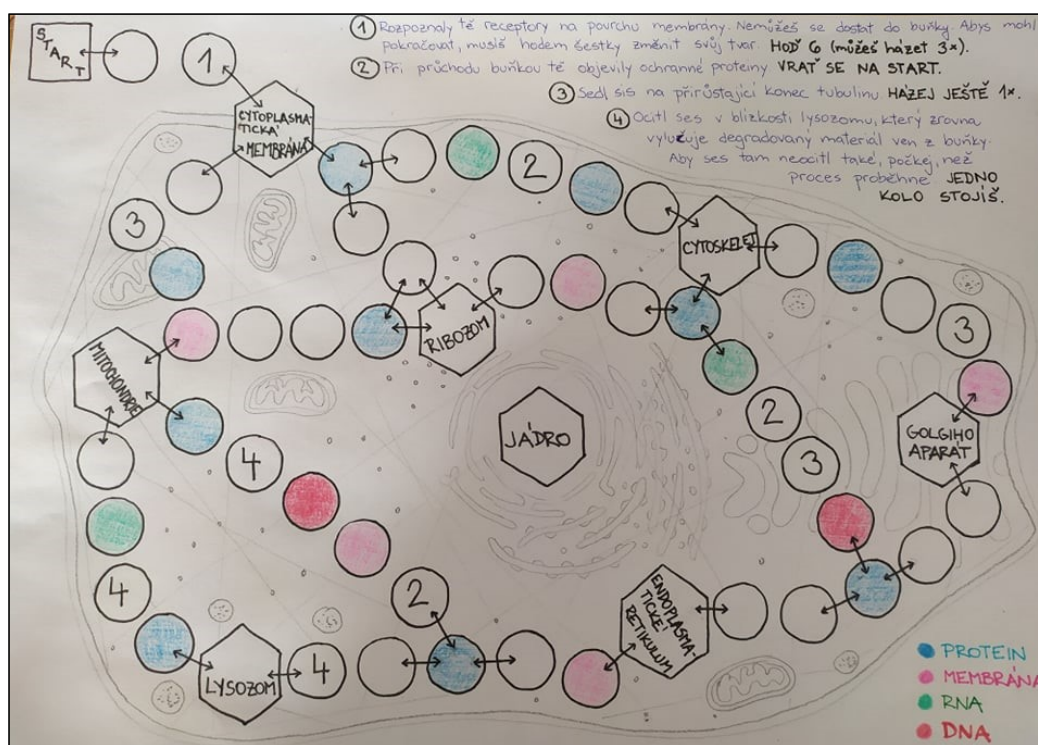 START
1 Rozpoznaly tě receptory na povrchu membrány. Nemůžeš se dostat do buňky. Abys mohl
pokračovat, musíš hodem šestky změnit svůj tvar HOĎ 6 (můžeš házet 3x).
2 Při průchodu buňkou tě objevily ochranné proteiny VRAŤ SE NA START.
3 Sedl sis na přirůstající konec tubulinu HÁZEJ JEŠTĚ 1x.
4 Ocitl ses v blízkosti lysozomu, který zrovna
vylučuje degradovaný materiál ven z buňky.
Aby ses tam neocitl také, počkej, než
proces proběhne JEDNO
KOLO STOJÍŠ.
1
CYTOPLASMA-
TICKÁ
MEMBRÁNA
2
3
CYTOSKELET
3
RIBOZOM
MITOCHONDRIE
2
JÁDRO
GOLGIHO
APARÁT
4
3
4
2
ENDOPLASMA-
TICKÉ
RETIKULUM
LYSOZOM
4
PROTEIN
MEMBRÁNA
RNA
DNA